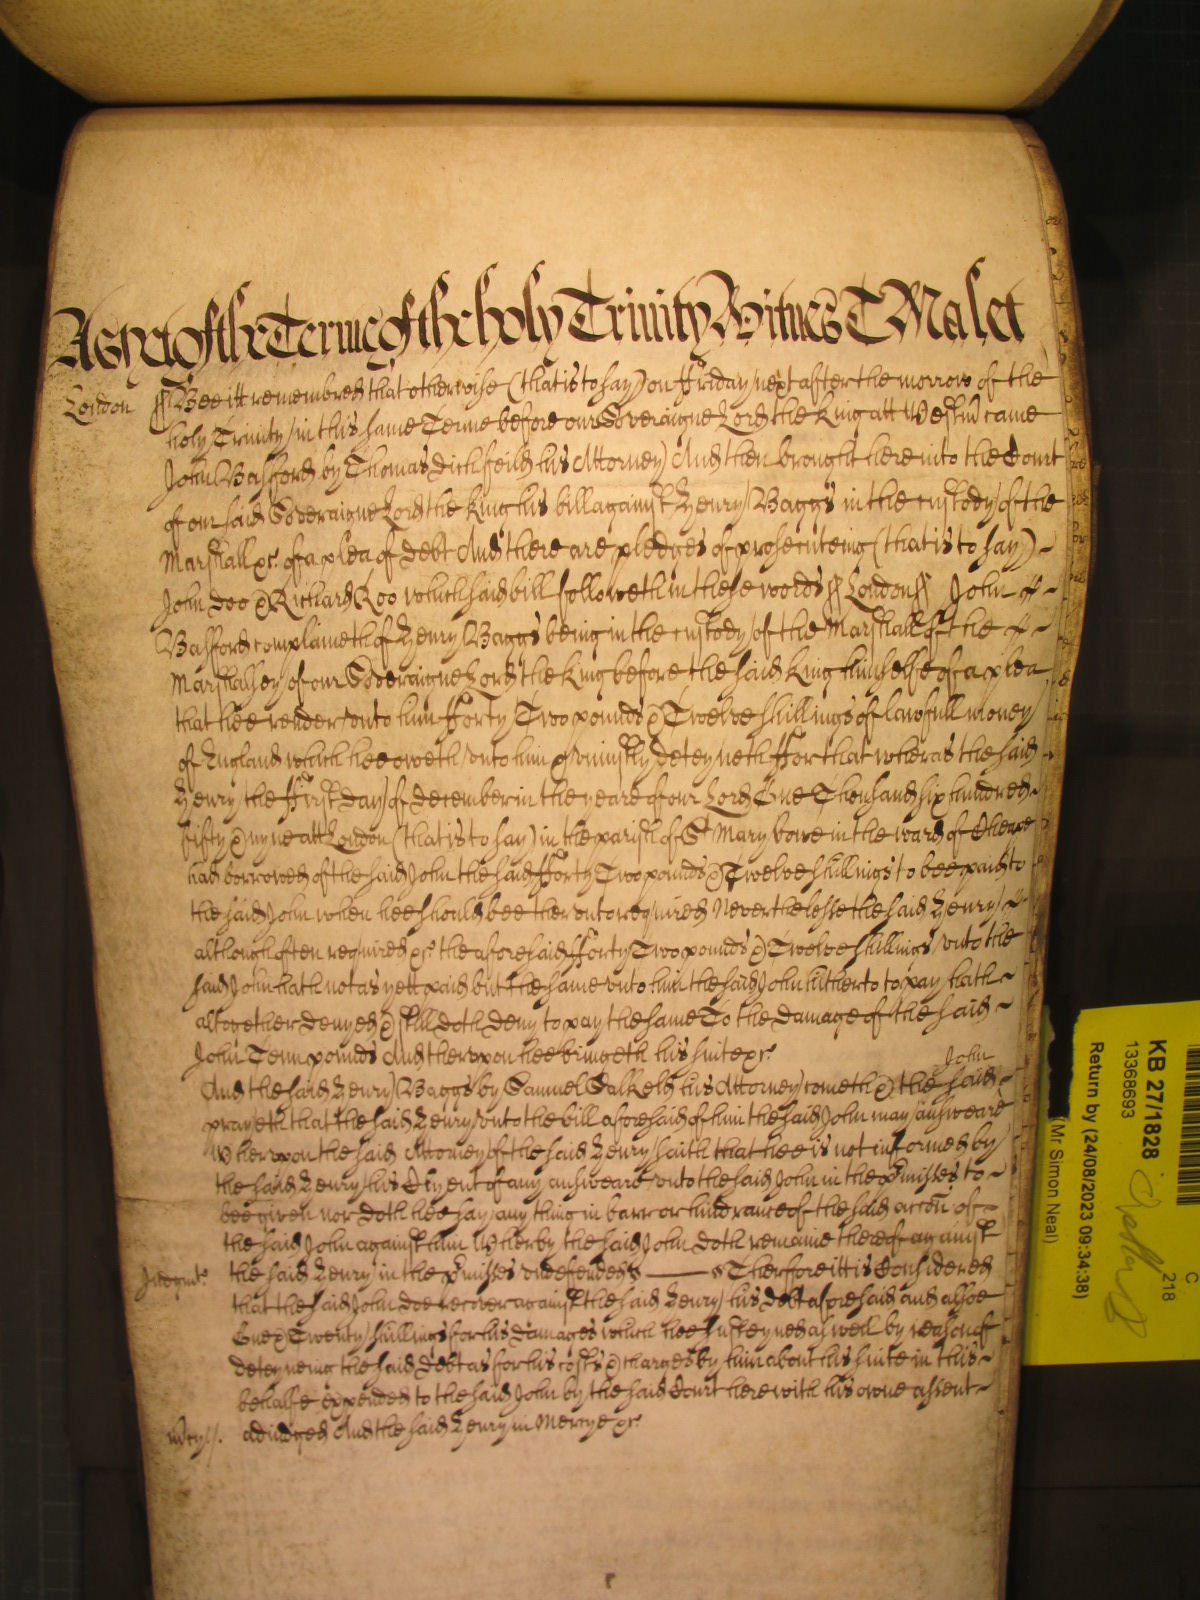 As yet of the Terme of the holy Trinity Witnes T Malet
London ss Bee itt remembred that otherwise (that is to say) on ffriday next after the morrow of the
holy Trinity in this same Terme before our Soveraigne Lord the King att Westm came
John Basford by Thomas Dickfeild his Attorney And then brought here into the Court
of our said Soveraigne Lord the King his bill against Henry Baggs in the custody of the
Marshall &c. of a plea of debt And there are pledges of prosecuteing (that is to say)
John Doo & Richard Roo which said bill followeth in these words ss London ss John
Basford complaineth of Henry Baggs being in the custody of the Marshall of the
Marshallsey of our Soveraigne Lord the King before the said King himselfe of a plea
that hee render unto him fforty Two pounds & Twelve shillings of lawfull money
of England which hee oweth unto him & uniustly deteyneth ffor that wheras the said
Henry the ffirst day of December in the yeare of our Lord One Thousand six hundred
fifty & nyne att London (that is to say) in the parish of St Mary bowe in the ward of Cheape
had borrowed of the said John the said fforty Two pounds & Twelve shillings to bee paid to
the said John when hee should bee therunto required Neverthelesse the said Henry
although often required &c. the aforesaid fforty Two pounds & Twelve shillings unto the
said John hath not as yett paid but the same unto him the said John hitherto to pay hath
altogether denyed & still doth deny to pay the same To the damage of the said
John Tenn pounds And therupon hee bringeth his suite &c.
John
And the said Henry Baggs by Samuel Salkeld his Attorney cometh & the said
prayeth that the said Henry unto the bill aforesaid of him the said John may answeare
Wherupon the said Attorney of the said Henry saith that hee is not informed by
the said Henry his Clyent of any answeare unto the said John in the p'misses to
bee given nor doth hee say any thing in barr or hindrance of the said accon of
the said John against him Wherby the said John doth remaine therof against
Judgmt. the said Henry in the p'misses undefended Therfore itt is Considered
that the said John doe recover against the said Henry his debt aforesaid and alsoe
One & Twenty shillings for his damages which hee susteyned as well by reason of
deteyneing the said debt as for his costs & charges by him about his suite in this
behalfe expended to the said John by the said Court here with his owne assent
mcy adiudged And the said Henry in Mercye &c.
C
218
KB 27/1828
13368693
Return by (24/08/2023 09:34:38)
(Mr Simon Neal)